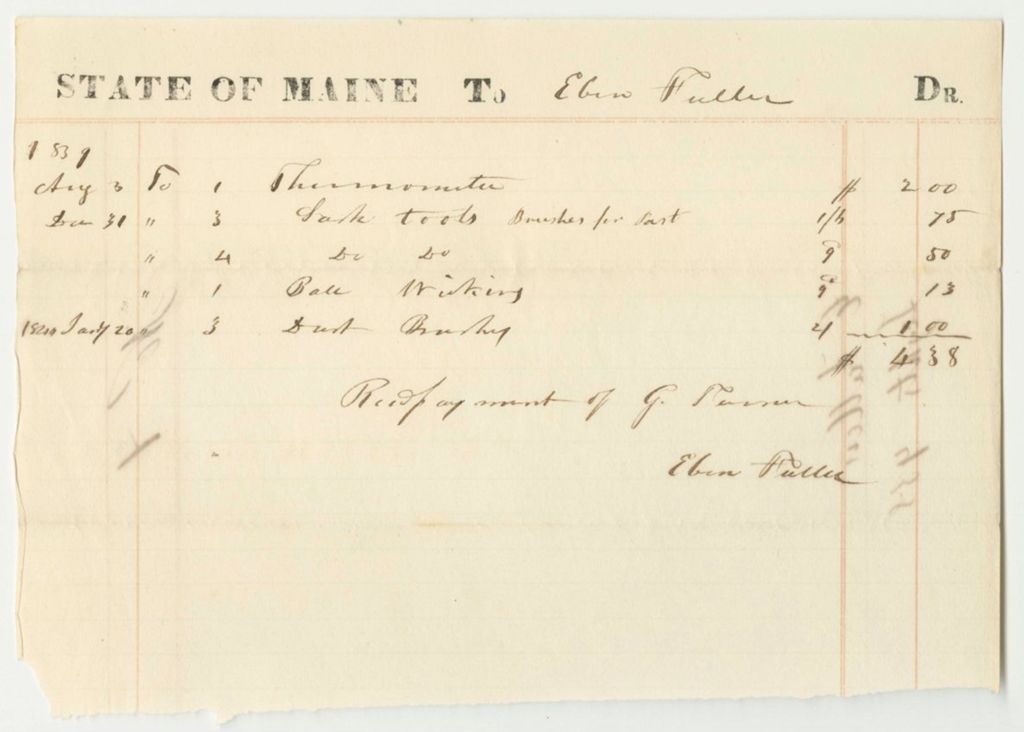 STATE OF MAINE To Eben Fuller DR.
1839
Aug 3 To 1 Thermometer $ 2 00
Dec 31 " 3 Sash tools Brushes for Dust 1/6 75
" 4 Do Do 9 50
" 1 Ball Wicking 9 13
1840 Jany 20 " 3 Dust Brushes 2/ 1 00
$ 4 38
Recd payment of G. Turner
Eben Fuller